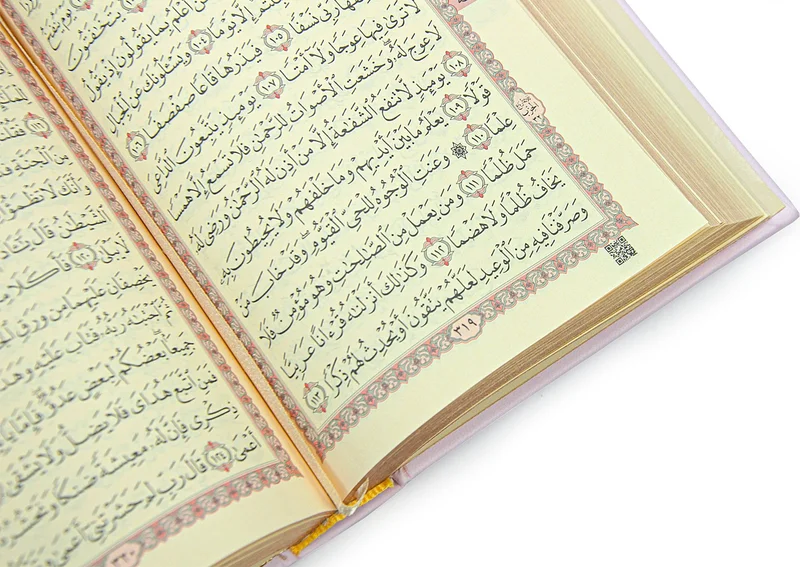 يَتَخَافَتُونَ
أَعْلَمُ بِمَا يَقُولُونَ إِذْ يَقُولُ
إِلَّا يَوْمًا ١٠٤ وَيَسْـَٔلُونَكَ عَنِ ٱلْجِبَالِ
نَسْفًا ١٠٥ فَيَذَرُهَا قَاعًا صَفْصَفًا ١٠٦
لَّا تَرَىٰ فِيهَا عِوَجًا وَلَآ أَمْتًا ١٠٧ يَوْمَئِذٍ يَتَّبِعُونَ ٱلدَّاعِىَ
لَا عِوَجَ لَهُۥ ۖ وَخَشَعَتِ ٱلْأَصْوَاتُ لِلرَّحْمَٰنِ فَلَا تَسْمَعُ إِلَّا هَمْسًا
١٠٨ يَوْمَئِذٍ لَّا تَنفَعُ ٱلشَّفَٰعَةُ إِلَّا مَنْ أَذِنَ لَهُ ٱلرَّحْمَٰنُ وَرَضِىَ لَهُۥ
قَوْلًا ١٠٩ يَعْلَمُ مَا بَيْنَ أَيْدِيهِمْ وَمَا خَلْفَهُمْ وَلَا يُحِيطُونَ بِهِۦ
عِلْمًا ١١٠ ۞ وَعَنَتِ ٱلْوُجُوهُ لِلْحَىِّ ٱلْقَيُّومِ ۖ وَقَدْ خَابَ مَنْ
حَمَلَ ظُلْمًا ١١١ وَمَن يَعْمَلْ مِنَ ٱلصَّٰلِحَٰتِ وَهُوَ مُؤْمِنٌ فَلَا
يَخَافُ ظُلْمًا وَلَا هَضْمًا ١١٢ وَكَذَٰلِكَ أَنزَلْنَٰهُ قُرْءَانًا عَرَبِيًّا
وَصَرَّفْنَا فِيهِ مِنَ ٱلْوَعِيدِ لَعَلَّهُمْ يَتَّقُونَ أَوْ يُحْدِثُ لَهُمْ ذِكْرًا ١١٣
٣١٩
١١٦ فَقُلْنَا
مِنَ ٱلْجَنَّةِ
وَأَنَّكَ لَا تَظْمَؤُا۟
ٱلشَّيْطَٰنُ قَالَ
لَّا يَبْلَىٰ ١٢٠ فَأَكَلَا
يَخْصِفَانِ عَلَيْهِمَا مِن وَرَقِ
ٱجْتَبَٰهُ رَبُّهُۥ فَتَابَ عَلَيْهِ وَهَدَىٰ
جَمِيعًۢا ۖ بَعْضُكُمْ لِبَعْضٍ عَدُوٌّ ۖ فَإِمَّا
فَمَنِ ٱتَّبَعَ هُدَاىَ فَلَا يَضِلُّ وَلَا يَشْقَىٰ
ذِكْرِى فَإِنَّ لَهُۥ مَعِيشَةً ضَنكًا وَنَحْشُرُهُۥ
أَعْمَىٰ ١٢٤ قَالَ رَبِّ لِمَ حَشَرْتَنِىٓ أَعْمَىٰ
٣٢٠